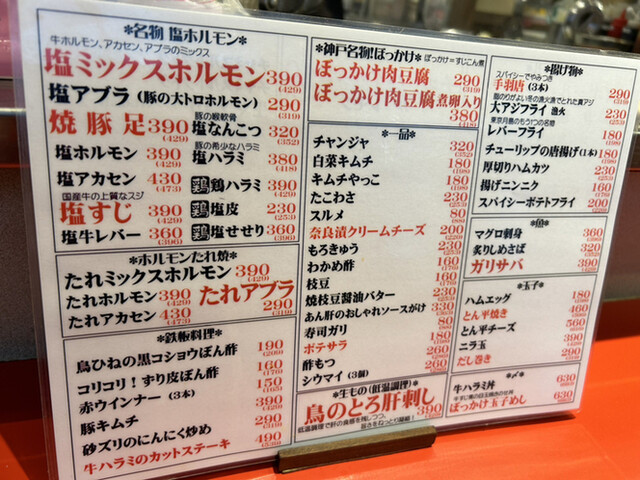 *名物 塩ホルモン*
牛ホルモン、アカセン、アブラのミックス
塩ミックスホルモン 390 (429)
塩アブラ (豚の大トロホルモン) 290 (319)
焼豚足 390 (429)
豚の喉軟骨
塩なんこつ 320 (352)
塩ホルモン 390 (429)
豚の希少なハラミ
塩ハラミ 380 (418)
塩アカセン 430 (473)
鶏 鶏ハラミ 390 (429)
国産牛の上質なスジ
塩すじ 390 (429)
鶏 塩皮 230 (253)
塩牛レバー 360 (396)
鶏 塩せせり 360 (396)
*ホルモンたれ焼*
たれミックスホルモン 390 (429)
たれホルモン 390 (429)
たれアブラ 290 (319)
たれアカセン 430 (473)
*鉄板料理*
鳥ひねの黒コショウぽん酢 190 (209)
コリコリ!ずり皮ぽん酢 160 (176)
赤ウインナー (3本) 150 (165)
豚キムチ 390 (429)
砂ズリのにんにく炒め 290 (319)
牛ハラミのカットステーキ 490 (539)
*神戸名物!ぼっかけ* ぼっかけ=すじこん煮
ぼっかけ肉豆腐 290 (319)
ぼっかけ肉豆腐 煮卵入り 380 (418)
*一品*
チャンジャ 320 (352)
白菜キムチ 180 (198)
キムチやっこ 180 (198)
たこわさ 230 (253)
スルメ 80 (88)
奈良漬クリームチーズ 200 (220)
もろきゅう 230 (253)
わかめ酢 160 (176)
枝豆 160 (176)
焼枝豆醤油バター 230 (253)
あん肝のおしゃれソースがけ 330
寿司ガリ 80
ポテサラ 180
酢もつ 260
シウマイ (3個) 260
*生もの (低温調理)*
鳥のとろ肝刺し 390 (429)
低温調理で肝の食感を残しつつ、
*揚げ物*
スパイシーでやみつき
手羽唐 (3本) 290 (319)
脂のりがよい冬の漁火漁でとれた真アジ
大アジフライ 漁火 230 (253)
東京月島のもう1つの名物
レバーフライ 180 (198)
チューリップの唐揚げ (1本) 180 (198)
厚切りハムカツ 230 (253)
揚げニンニク 160 (176)
スパイシーポテトフライ 200 (220)
*魚*
マグロ刺身 360 (396)
炙りしめさば 320 (352)
ガリサバ 390 (429)
*玉子*
ハムエッグ 180 (198)
とん平焼き 460
とん平チーズ 560
ニラ玉 390
だし巻き 290
*〆*
牛ハラミ丼 630
ぼっかけ玉子めし 630